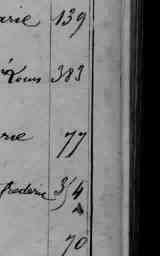 arie 139
Louis 383
rie 77
frederic 314
70